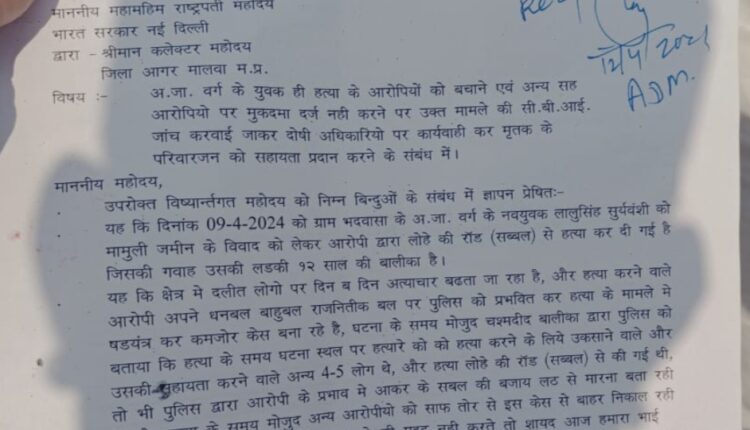 माननीय महामहिम राष्ट्रपती महोदय
भारत सरकार नई दिल्ली
द्वारा - श्रीमान कलेक्टर महोदय
जिला आगर मालवा म.प्र.
विषय :- अ.जा. वर्ग के युवक ही हत्या के आरोपियों को बचाने एवं अन्य सह
आरोपियो पर मुकदमा दर्ज नही करने पर उक्त मामले की सी.बी.आई.
जांच करवाई जाकर दोषी अधिकारियो पर कार्यवाही कर मृतक के
परिवारजन को सहायता प्रदान करने के संबंध में।
माननीय महोदय,
उपरोक्त विष्यार्न्तगत महोदय को निम्न बिन्दुओं के संबंध में ज्ञापन प्रेषितः-
यह कि दिनांक 09-4-2024 को ग्राम भदवासा के अ.जा. वर्ग के नवयुवक लालुसिंह सुर्यवंशी को
मामुली जमीन के विवाद को लेकर आरोपी द्वारा लोहे की रॉड (सब्बल) से हत्या कर दी गई है
जिसकी गवाह उसकी लडकी १२ साल की बालीका है।
यह कि क्षेत्र मे दलीत लोगो पर दिन ब दिन अत्याचार बढता जा रहा है, और हत्या करने वाले
आरोपी अपने धनबल बाहुबल राजनितीक बल पर पुलिस को प्रभवित कर हत्या के मामले मे
षडयंत्र कर कमजोर केस बना रहे है, घटना के समय मोजुद चश्मदीद बालीका द्वारा पुलिस को
बताया कि हत्या के समय घटना स्थल पर हत्यारे को को हत्या करने के लिये उकसाने वाले और
उसकी सुहायता करने वाले अन्य 4-5 लोग थे, और हत्या लोहे की रॉड (सब्बल) से की गई थी,
तो भी पुलिस द्वारा आरोपी के प्रभाव मे आकर के सबल की बजाय लठ से मारना बता रही
के समय मोजुद अन्य आरोपीयो को साफ तोर से इस केस से बाहर निकाल रही
नही करते तो शायद आज हमारा भाई
ADM.